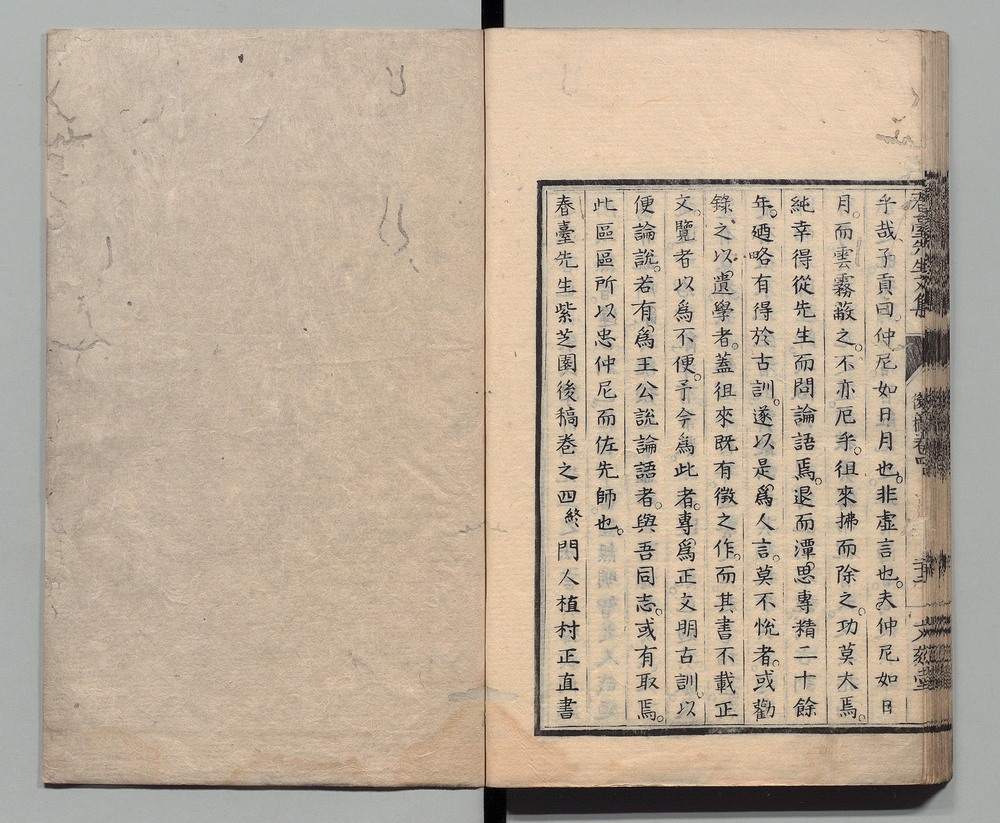 春臺先生文集 後稿卷四
乎哉子貢曰仲尼如日月也非虛言也夫仲尼如日
月而雲霧蔽之不亦厄乎徂來拂而除之功莫大焉
純幸得從先生而問論語焉退而潭思專精二十餘
年廼略有得於古訓遂以是爲人言莫不悅者或勸
錄之以遺學者蓋徂來既有徵之作而其書不載正
文覽者以爲不便予今爲此者專爲正文明古訓以
便論說若有爲王公說論語者與吾同志或有取焉
此區區所以忠仲尼而佐先師也
春臺先生紫芝園後稿卷之四終門人植村正直書